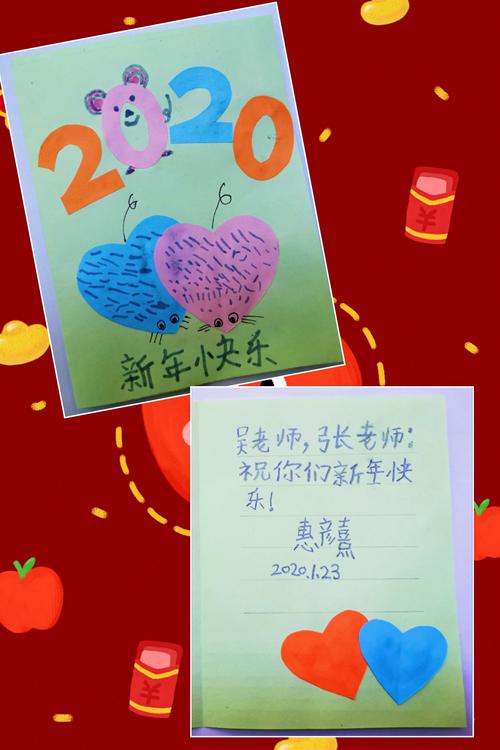 2020
新年快乐
吴老师，张老师：
祝你们新年快
乐！
惠彦熹
2020.1.23